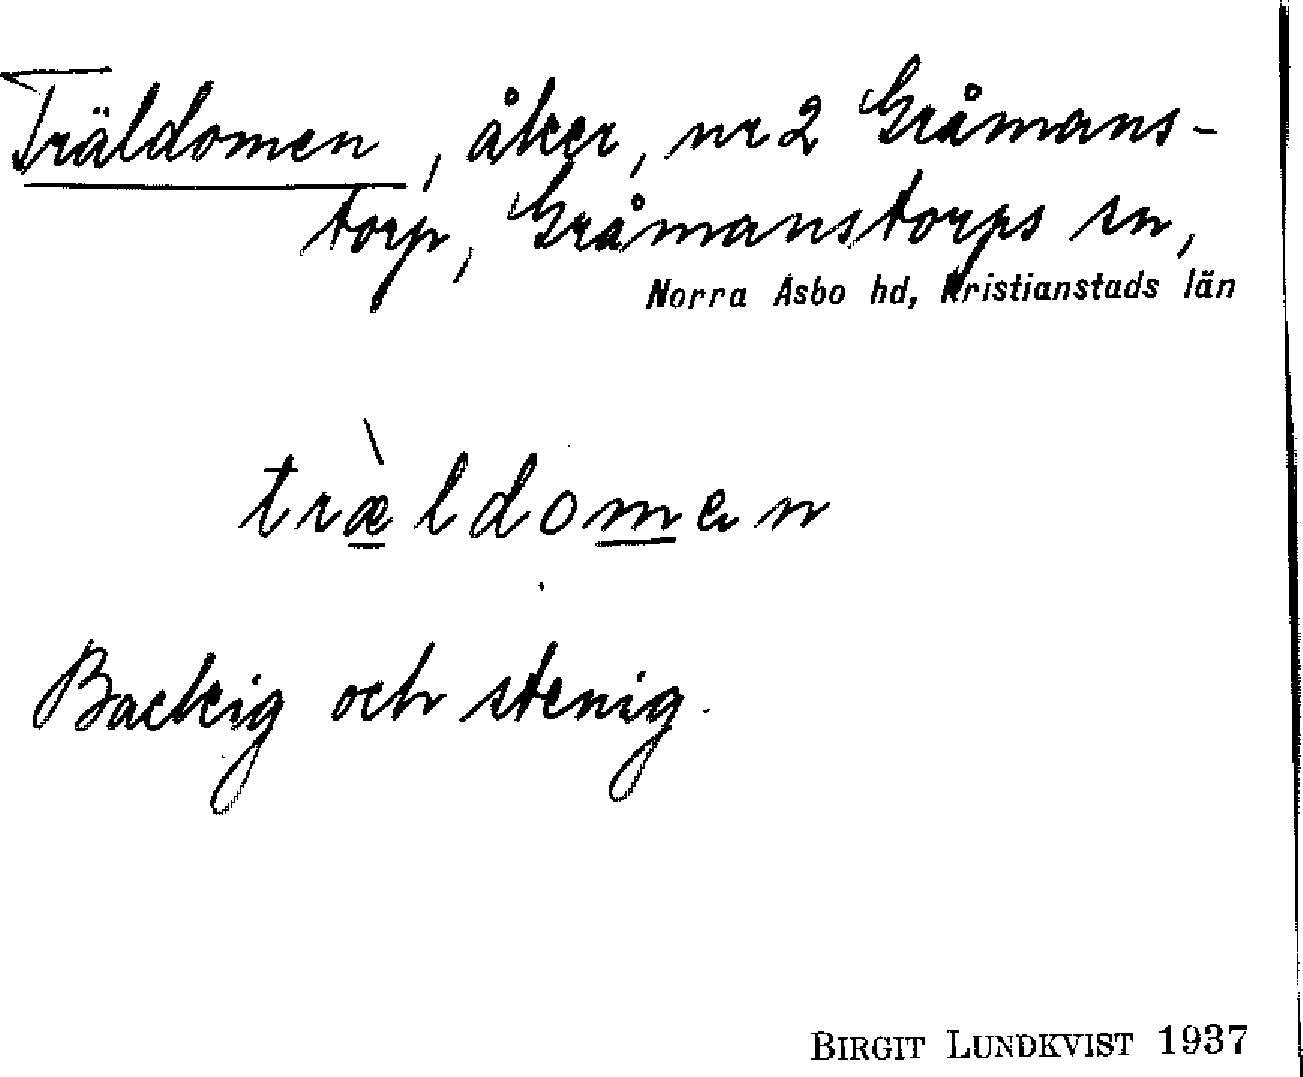 Träldomen, åker, nr 2 Gråmans-
torp, Gråmanstorps sn,
Norra Åsbo hd, Kristianstads län
træ̀ldomen
Backig och stenig.
BIRGIT LUNDKVIST 1937